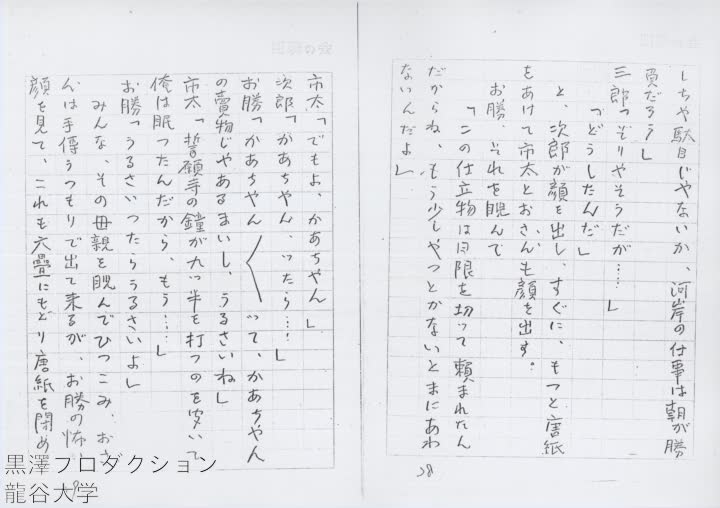 しちや駄目じやないか、河岸の仕事は朝が勝
負だろう」
三郎「そりやそうだが……」
「どうしたんだ」
と、次郎が顔を出し、すぐに、もつと唐紙
をあけて市太とおさんも顔を出す。
お勝、それを睨んで
「この仕立物は日限を切って頼まれたん
だからね、もう少しやつとかないとまにあわ
ないんだよ」
28
市太「でもよ、かあちやん」
次郎「かあちやん、つたら…」
お勝「かあちやん〱って、かあちやん
の賣物じやあるまいし、うるさいね」
市太「誓願寺の鐘が九ッ半を打つのを聞いて
俺は眠つたんだから、もう……」
お勝「うるさいつたらうるさいよ」
みんな、その母親を睨んでひつこみ、おさ
んは手傳うつもりで出て来るが、お勝の怖い
顔を見て、これも六疊にもどり唐紙を閉め
黒澤プロダクション
龍谷大学